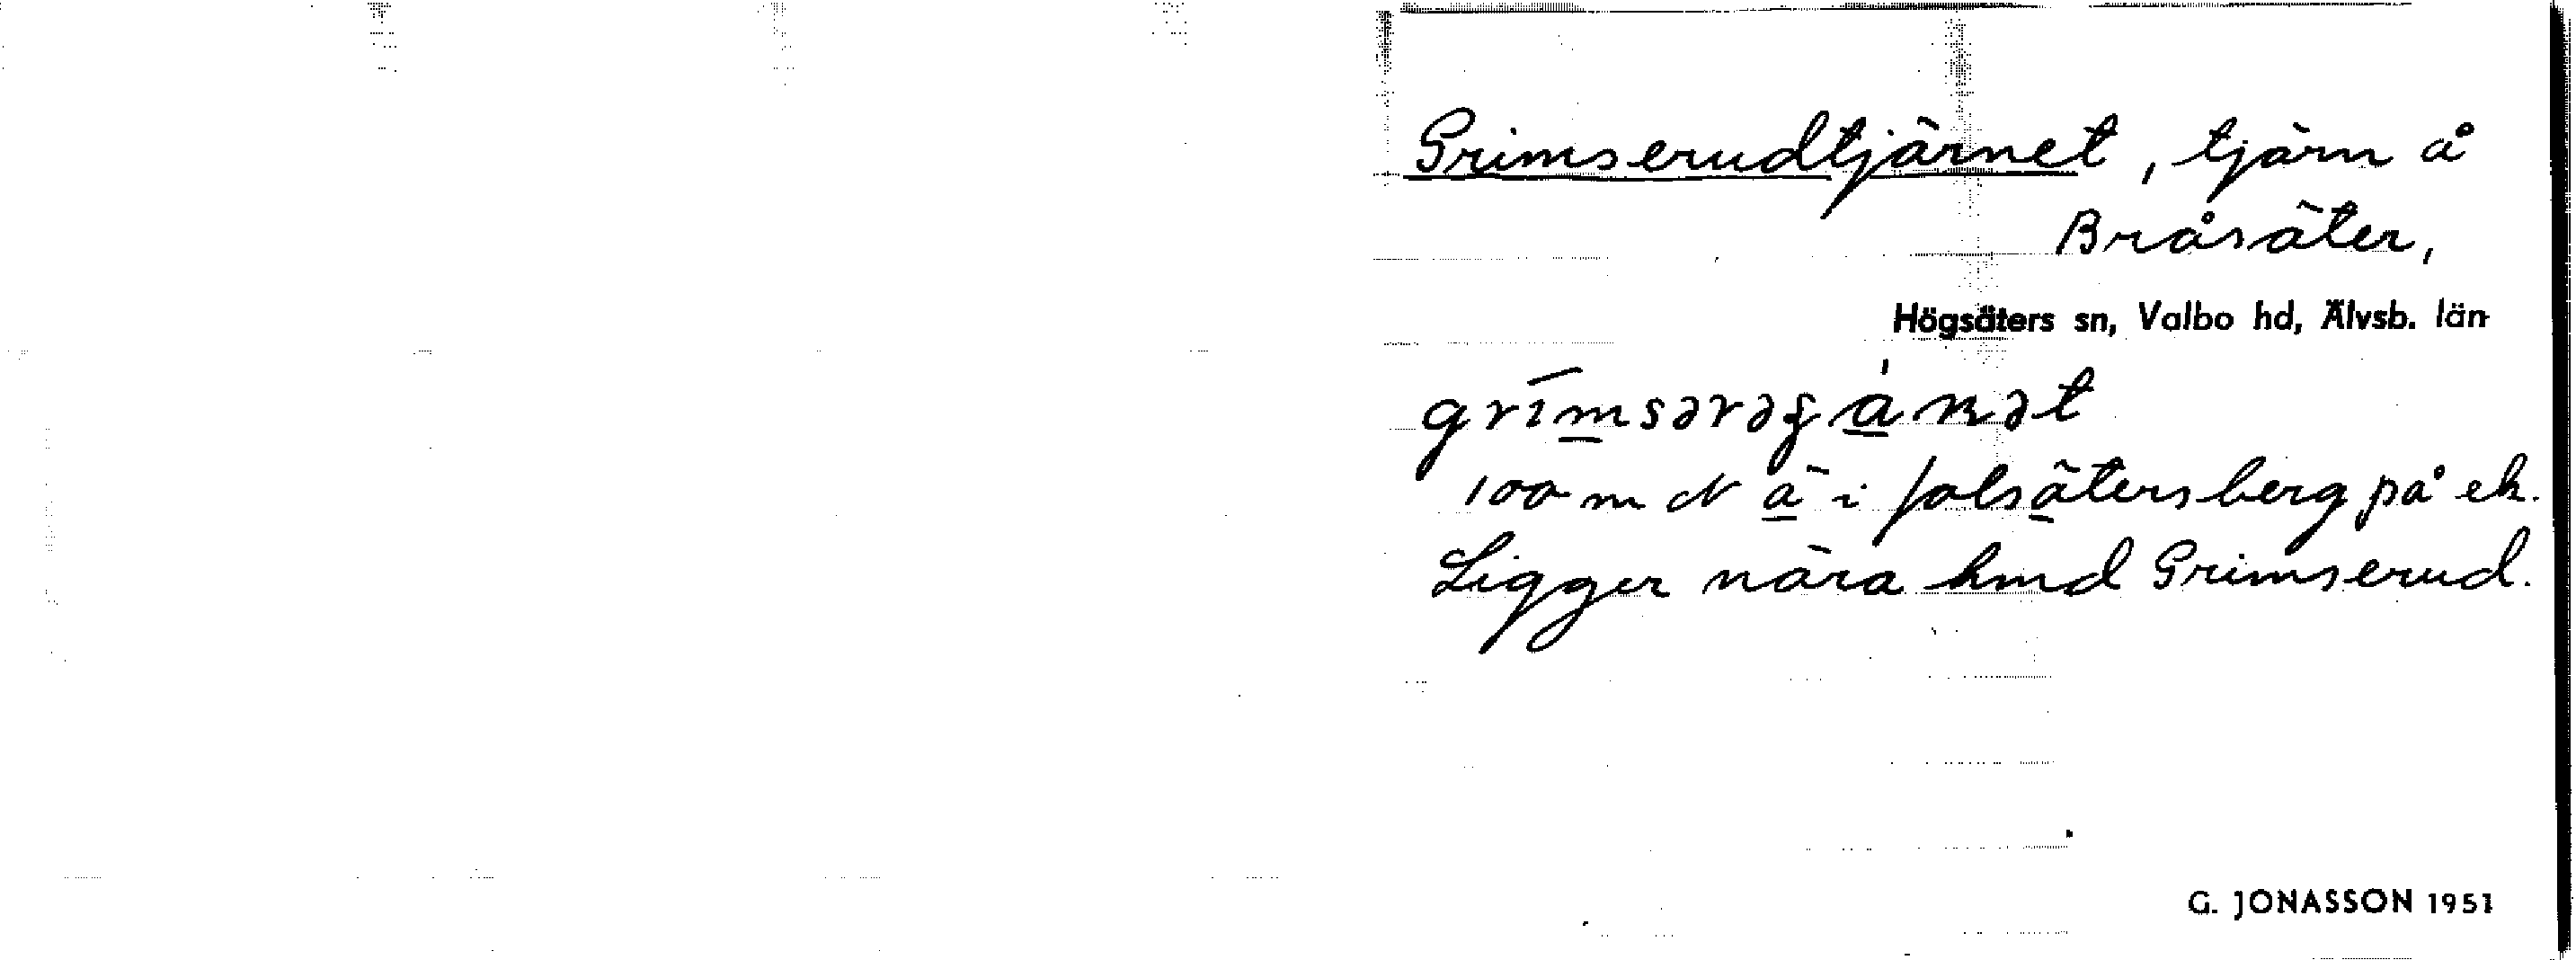 Grimserudtjärnet, tjärn å
Bråsäter,
Högsäters sn, Valbo hd, Älvsb. län
100 m N ä i Jolsätersberg på ek.
Ligger nära hmd Grimserud.
G. JONASSON 1951